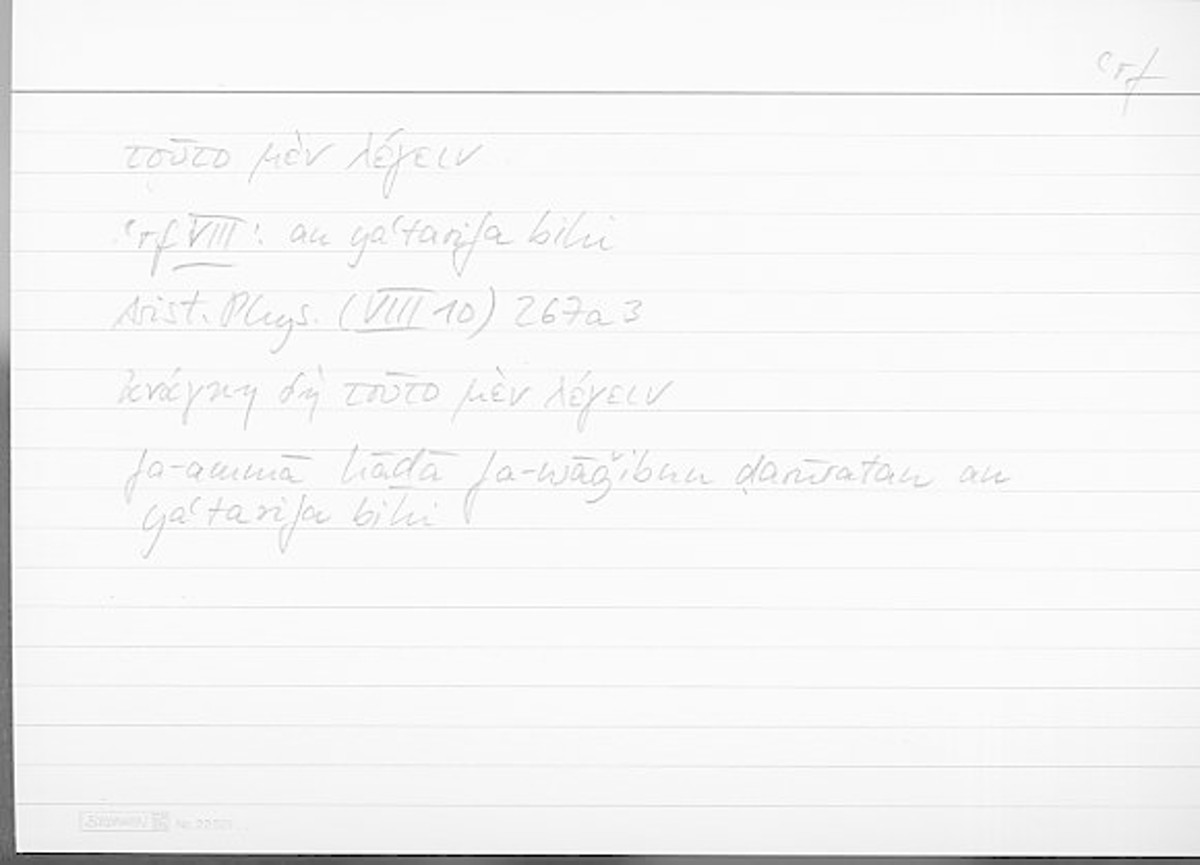 ʿrf
τοῦτο μὲν λέγειν
ʿrf VIII: an yaʿtarifa bihi
Arist. Phys. (VIII 10) 267a3
ἀνάγκη δὴ τοῦτο μὲν λέγειν
fa-ammā hāḏā fa-wāǧibun ḍarūratan an
yaʿtarifa bihi